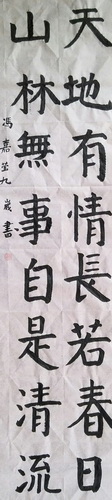 天地有情長若春日
山林無事自是清流
馮嘉瑩九歲書